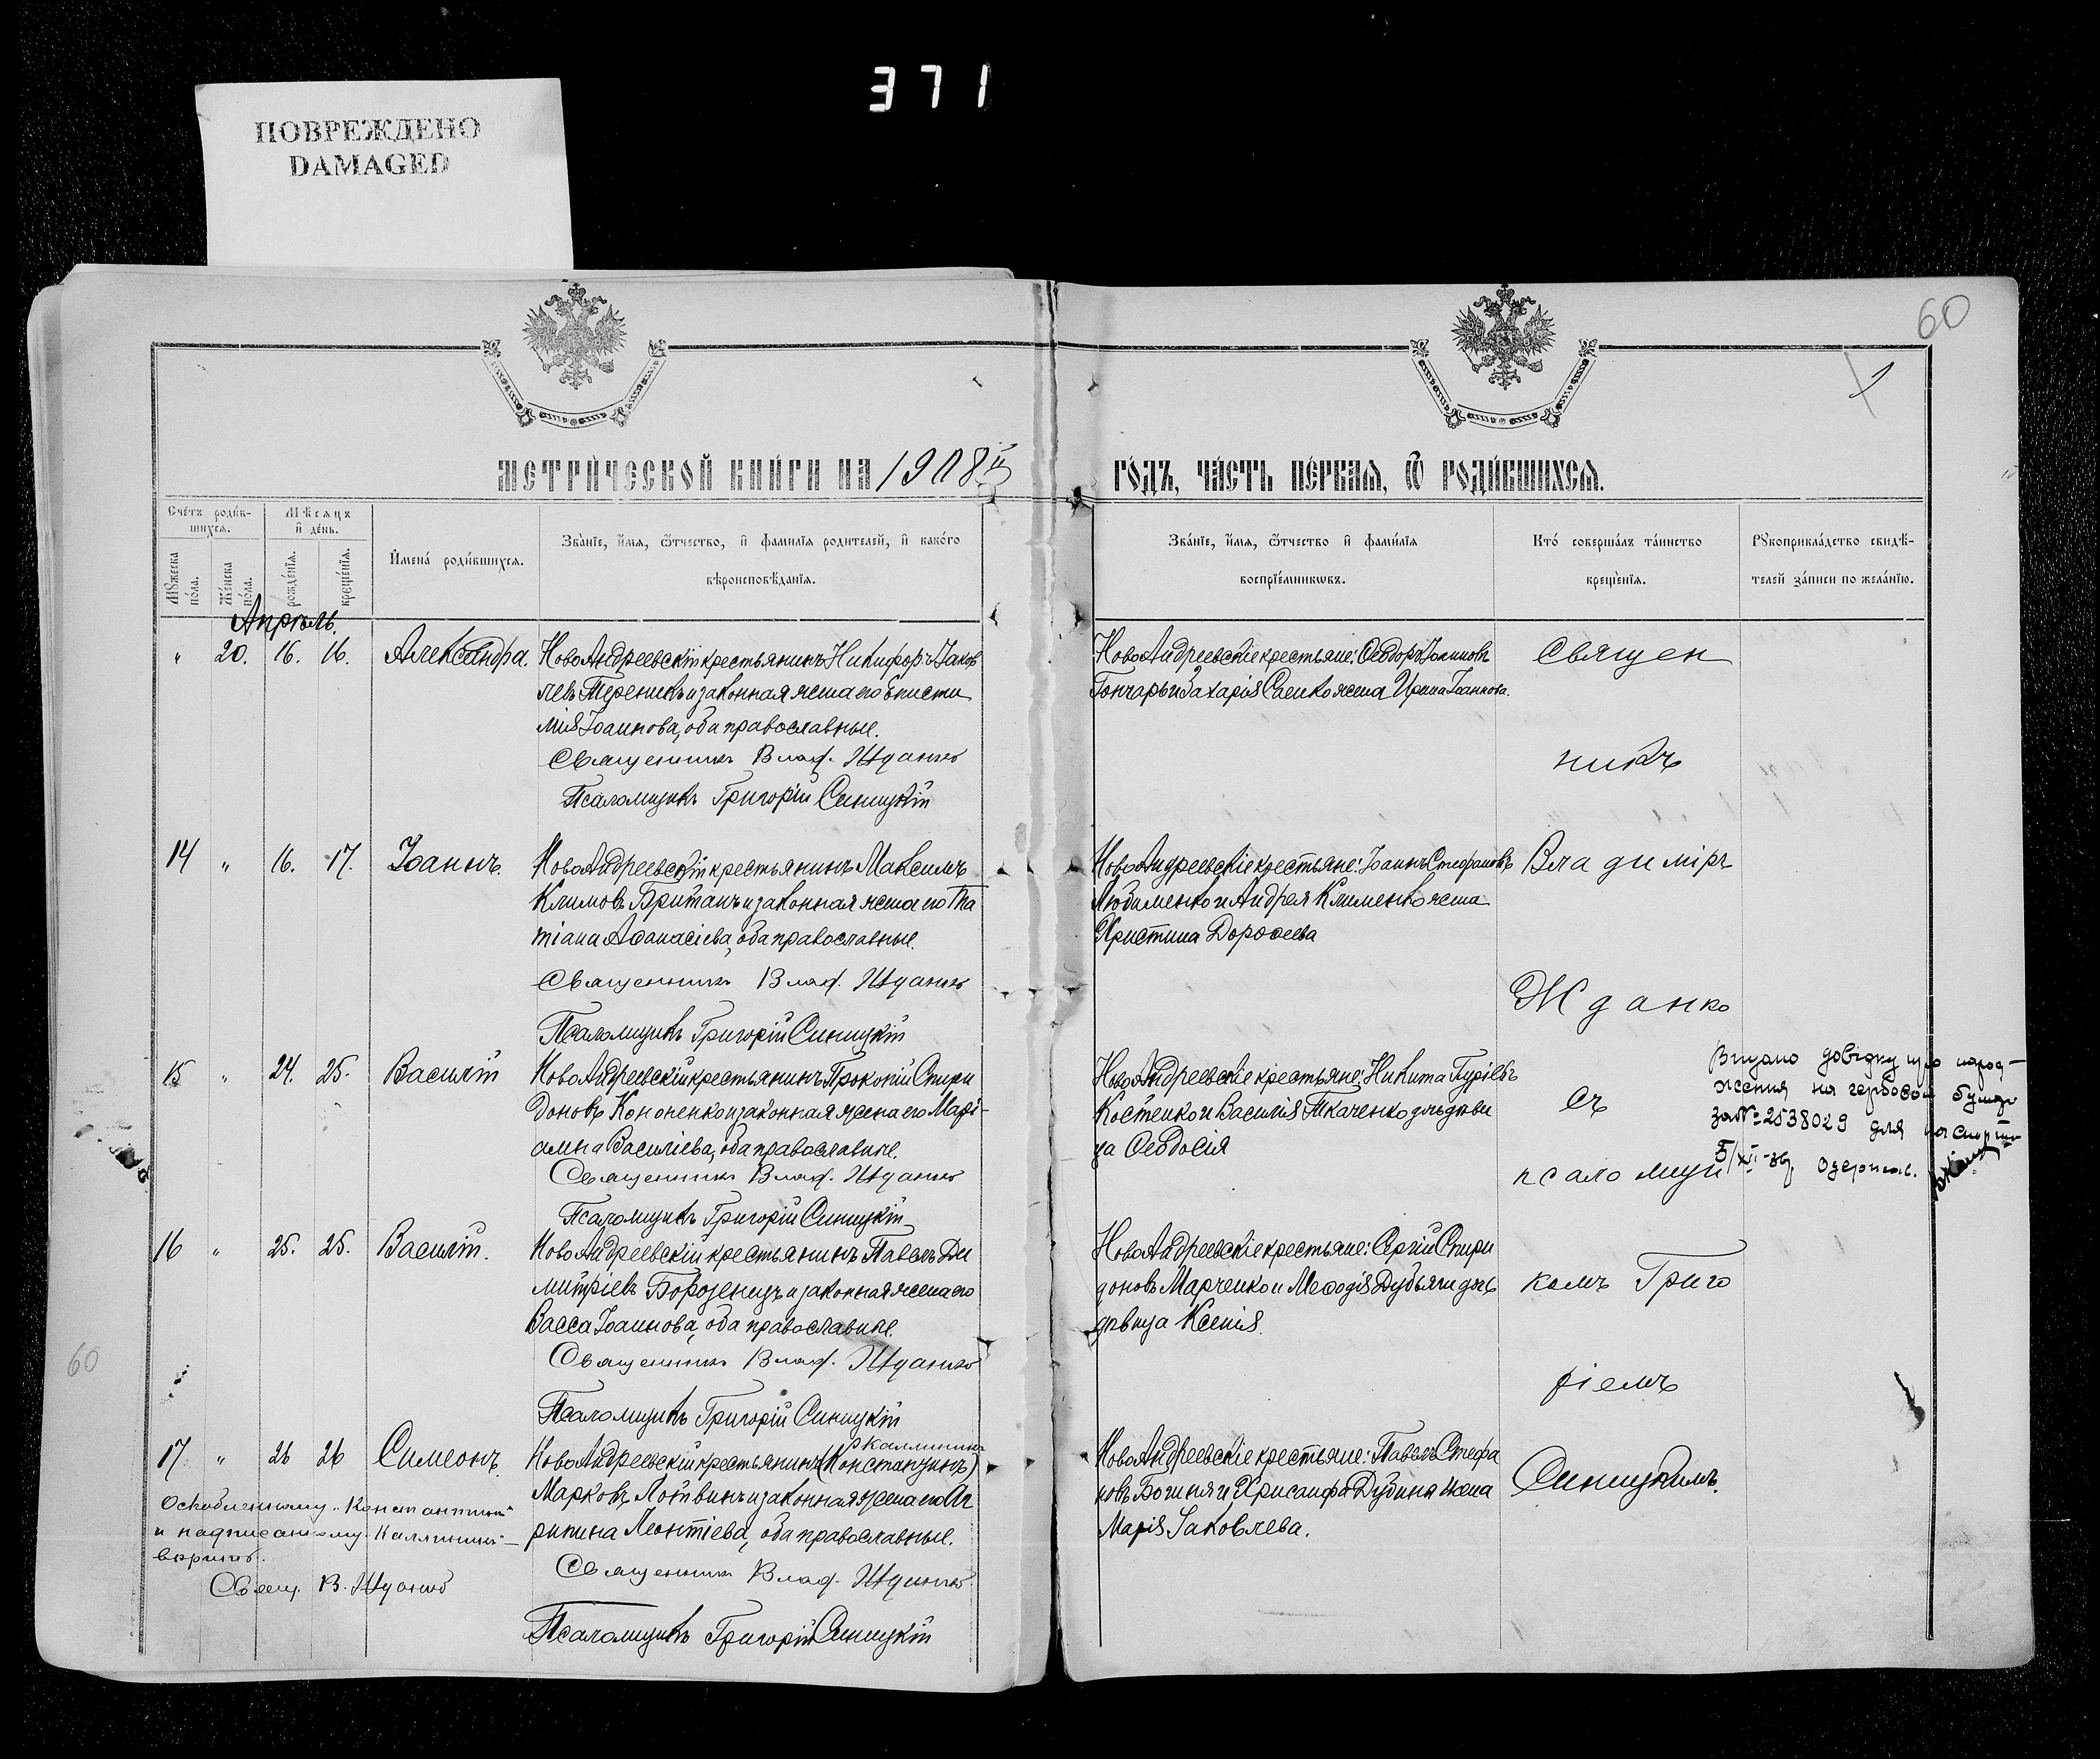 371
ПОВРЕЖДЕНО
DAMAGED
60
МЕТРИЧЕСКОЙ КНИГИ НА 1908й
ГОДЪ, ЧАСТЬ ПЕРВАЯ, Ѿ РОДИВШИХСЯ.
Счётъ родив-
шихся.
Мѣсяцъ
и день.
Мужеска
пола.
Женска
пола.
рожденія.
крещенія.
Имена родившихся.
Званіе, имя, отчество, и фамилія родителей, и какого
вѣроисповѣданія.
Званіе, имя, отчество и фамилія
воспріемниковъ.
Кто совершалъ таинство
крещенія.
Рукоприкладство свидѣ-
телей записи по желанію.
Апрѣль.
" 20. 16. 16. Александра.
НовоАндреевскій крестьянинъ Никифоръ Іаков
левъ Тереникъ и законная жена его Еписти
мія Іоаннова, оба православные.
Священникъ Влад. Жданко
Псаломщикъ Григорій Синицкій
НовоАндреевскіе крестьяне: Ѳеодоръ Іоанновъ
Гончаръ и Захарія Саенко жена Ирина Іоаннова.
14 " 16. 17. Іоаннъ.
НовоАндреевскій крестьянинъ Максимъ
Климовъ Британъ и законная жена его Та
тіана Аѳанасіева, оба православные.
Священникъ Влад. Жданко
Псаломщикъ Григорій Синицкій
НовоАндреевскіе крестьяне: Іоаннъ Стефановъ
Любименко и Андрея Клименко жена
Христина Дороѳеева
15 " 24. 25. Василій
НовоАндреевскій крестьянинъ Прокопій Спири
доновъ Кононенко и законная жена его Марі-
амна Василіева, оба православные.
Священникъ Влад. Жданко
Псаломщикъ Григорій Синицкій
НовоАндреевскіе крестьяне: Никита Гуріевъ
Костенко и Василія Ткаченко дочь дѣви
ца Ѳеодосія
Видано довідку про народ-
ження на гербовом бумазі
за № 2538029 для паспорта
16 " 25. 25. Василій.
НовоАндреевскій крестьянинъ Павелъ Ди
митріевъ Борозенецъ и законная жена его
Васса Іоаннова, оба православные.
Священникъ Влад. Жданко
Псаломщикъ Григорій Синицкій
НовоАндреевскіе крестьяне: Сергій Спири
доновъ Марченко и Меѳодія Дубяги дочь
дѣвица Ксенія.
17 " 26 26 Симеонъ.
Каллиникъ
НовоАндреевскій крестьянинъ (Констанцинъ)
Марковъ Логвинъ и законная жена его Аг
рипина Леонтіева, оба православные.
Священникъ Влад. Жданко
Псаломщикъ Григорій Синицкій
НовоАндреевскіе крестьяне: Павелъ Стефа
новъ Богиня и Хрисанфа Дубина жена
Марія Іаковлева.
Священ
никъ
Владиміръ
Жданко
съ
псаломщи
комъ Григо
ріемъ
Синицкимъ.
Оскобленному "Константинъ"
и надписанному "Каллиникъ"
вѣрить.
Свящ. В. Жданко
60